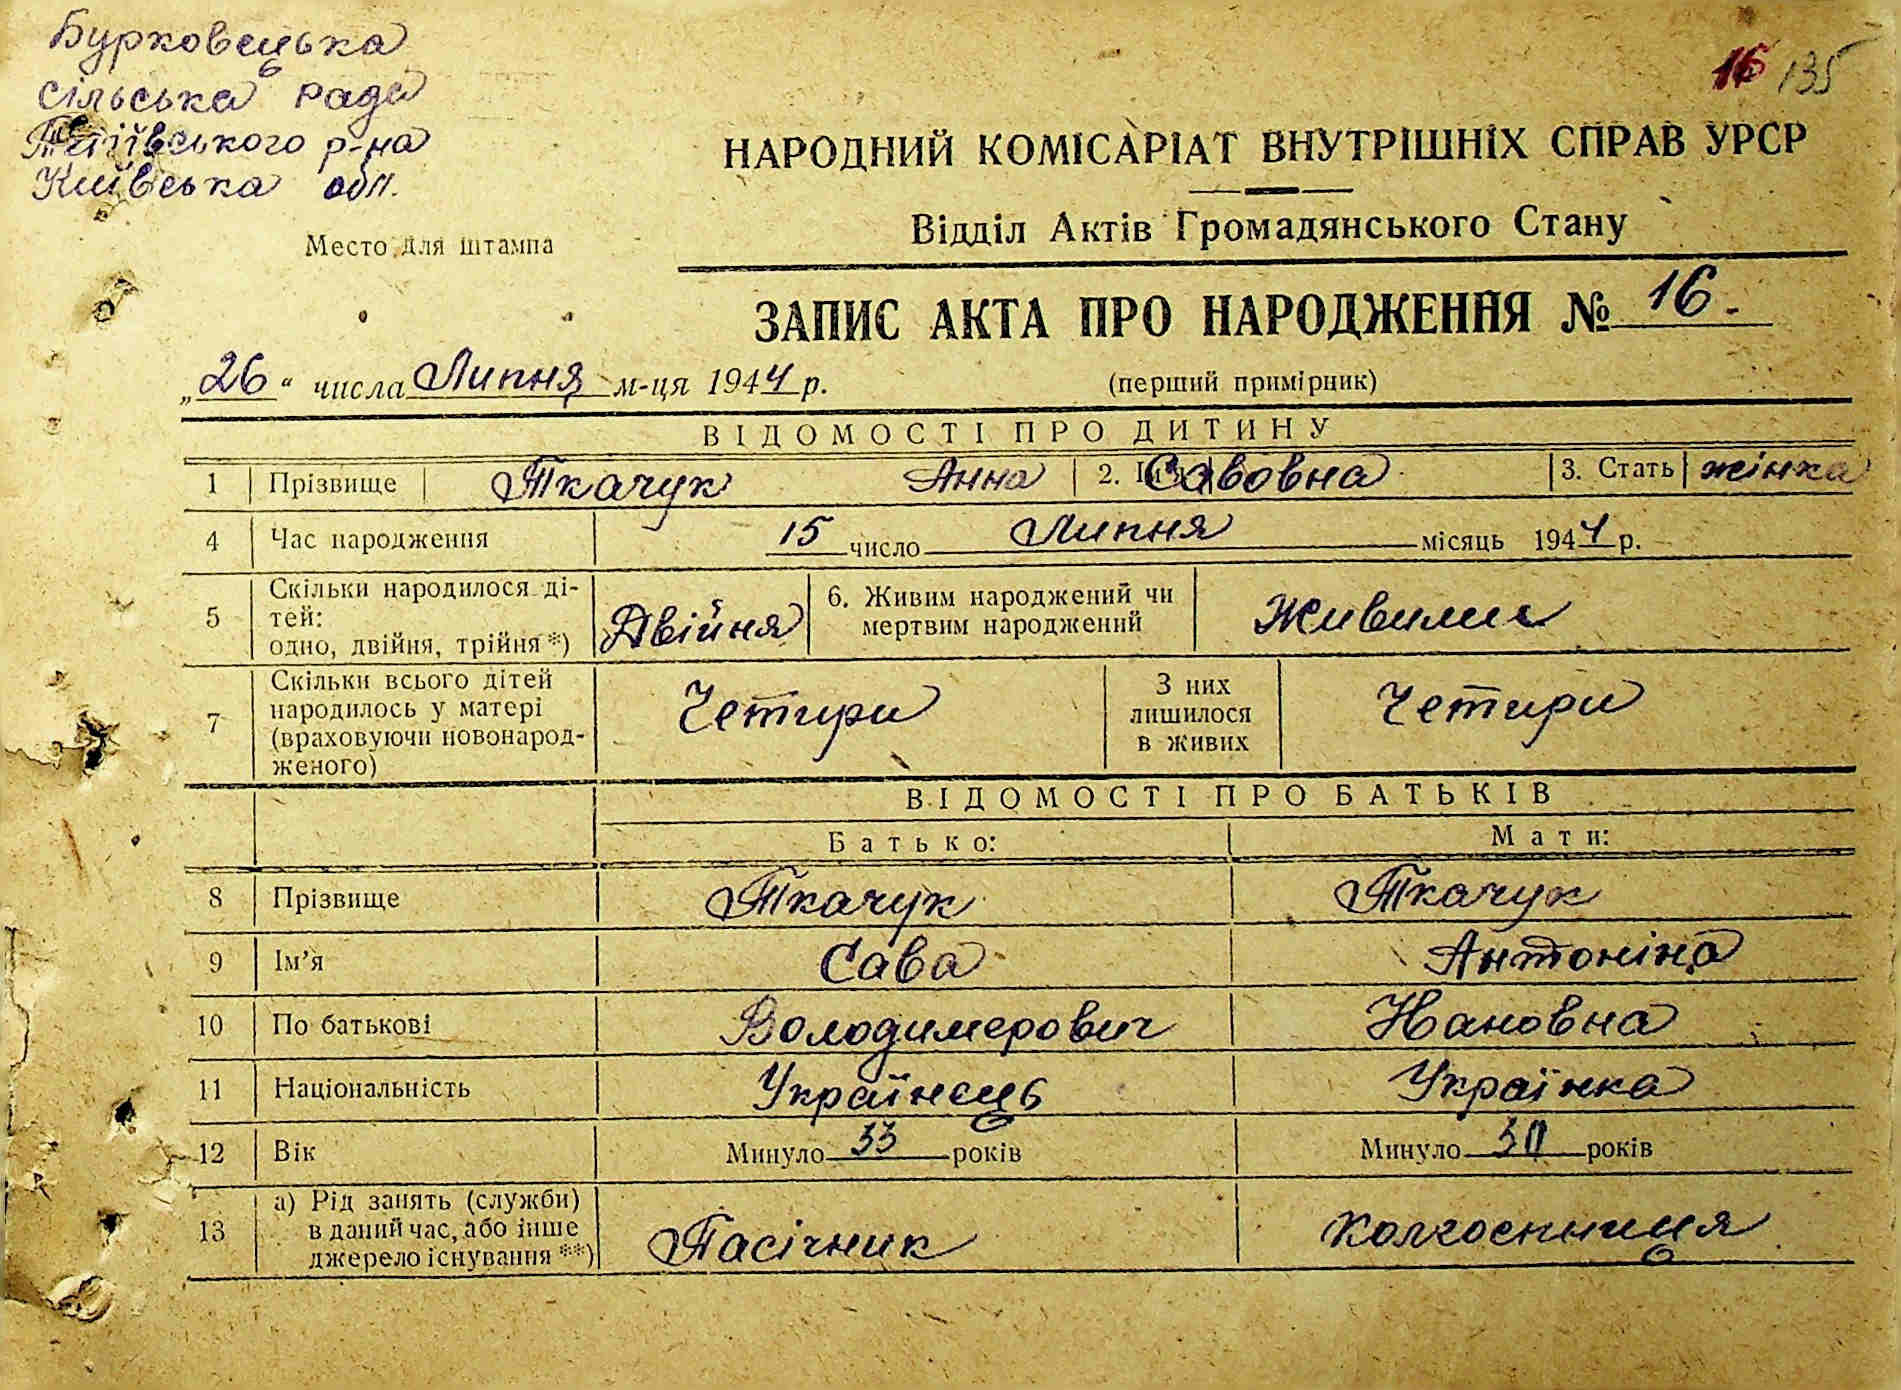 Бурковецька
сільська рада
Тетіївського р-на
Київська обл.
Место для штампа
16 135
НАРОДНИЙ КОМІСАРІАТ ВНУТРІШНІХ СПРАВ УРСР
Відділ Актів Громадянського Стану
ЗАПИС АКТА ПРО НАРОДЖЕННЯ № 16.
„26“ числа Липня м-ця 1944 р. (перший примірник)
ВІДОМОСТІ ПРО ДИТИНУ
1 Прізвище Ткачук Анна 2. Савовна 3. Стать жінка
4 Час народження 15 число Липня місяць 1944 р.
5 Скільки народилося ді-
тей:
одно, двійня, трійня *) Двійня 6. Живим народжений чи
мертвим народжений Живими
7 Скільки всього дітей
народилось у матері
(враховуючи новонарод-
женого) Четири З них
лишилося
в живих Четири
ВІДОМОСТІ ПРО БАТЬКІВ
Батько: Мати:
8 Прізвище Ткачук Ткачук
9 Ім’я Сава Антоніна
10 По батькові Володимерович Івановна
11 Національність Українець Українка
12 Вік Минуло 33 років Минуло 30 років
13 а) Рід занять (служби)
в даний час, або інше
джерело існування **) Пасічник Колгоспниця